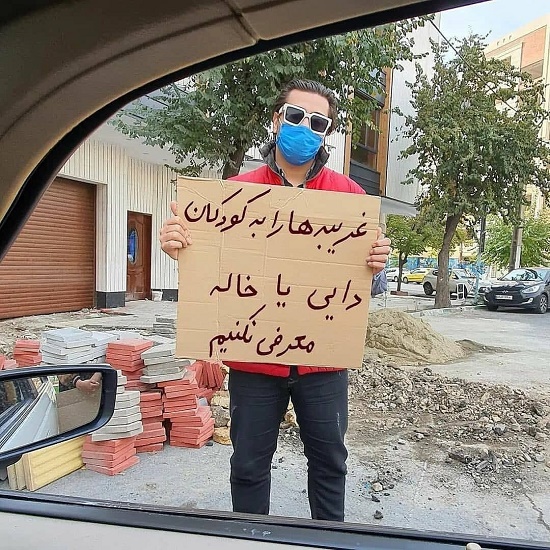 غریبه‌ها را به کودکان
دایی یا خاله
معرفی نکنیم